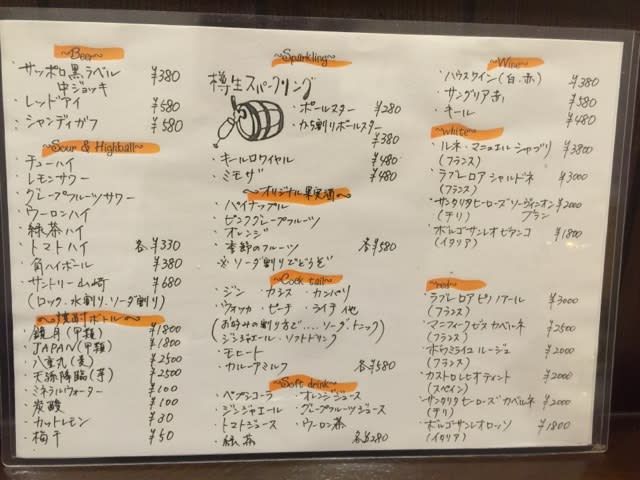 ~Beer~
・サッポロ黒ラベル
中ジョッキ ¥380
・レッドアイ ¥580
・シャンディガフ ¥580
~Sour & Highball~
・チューハイ
・レモンサワー
・グレープフルーツサワー
・ウーロンハイ
・緑茶ハイ
・トマトハイ 各¥330
・角ハイボール ¥380
・サントリー山崎 ¥680
(ロック、水割り、ソーダ割り)
~焼酎ボトル~
・鏡月(甲類) ¥1800
・JAPAN(甲類) ¥1800
・八重丸(麦) ¥2500
・天孫降臨(芋) ¥2500
・ミネラルウォーター ¥100
・炭酸 ¥100
・カットレモン ¥30
・梅干 ¥50
~Sparkling~
樽生スパークリング
・ポールスター ¥280
・かち割りポールスター
¥380
・キールロワイヤル ¥480
・ミモザ ¥480
~オリジナル果実酒~
・パイナップル
・ピンクグレープフルーツ
・オレンジ
・季節のフルーツ 各¥580
※ソーダ割りでどうぞ
~Cock tail~
・ジン ・カシス ・カンパリ
・ウォッカ ・ピーチ ・ライチ 他
(お好みの割り方で....ソーダ、トニック)
ジンジャエール、ソフトドリンク
・モヒート
・カルーアミルク 各¥580
~Soft drink~
・ペプシコーラ ・オレンジジュース
・ジンジャエール ・グレープフルーツジュース
・トマトジュース ・ウーロン茶
・緑茶 各¥280
~Wine~
・ハウスワイン(白、赤) ¥380
・サングリア赤 ¥580
・キール ¥480
~white~
・ルネ・マニュエル シャブリ ¥3800
(フランス)
・ラブレロア シャルドネ ¥3000
(フランス)
・サンタリタ ヒーローズ ソーヴィニオン ¥2000
(チリ) ブラン
・ボルゴサンレオ ビアンコ ¥1800
(イタリア)
~red~
・ラブレロア ピノノアール ¥3000
(フランス)
・マニフィークゼス カベルネ ¥2500
(フランス)
ルージュ ¥2000
(フランス)
・カストロ レオ ティント ¥2000
(スペイン)
・サンタリタ ヒーローズ カベルネ ¥2000
(チリ)
・ボルゴサンレオ ロッソ ¥1800
(イタリア)